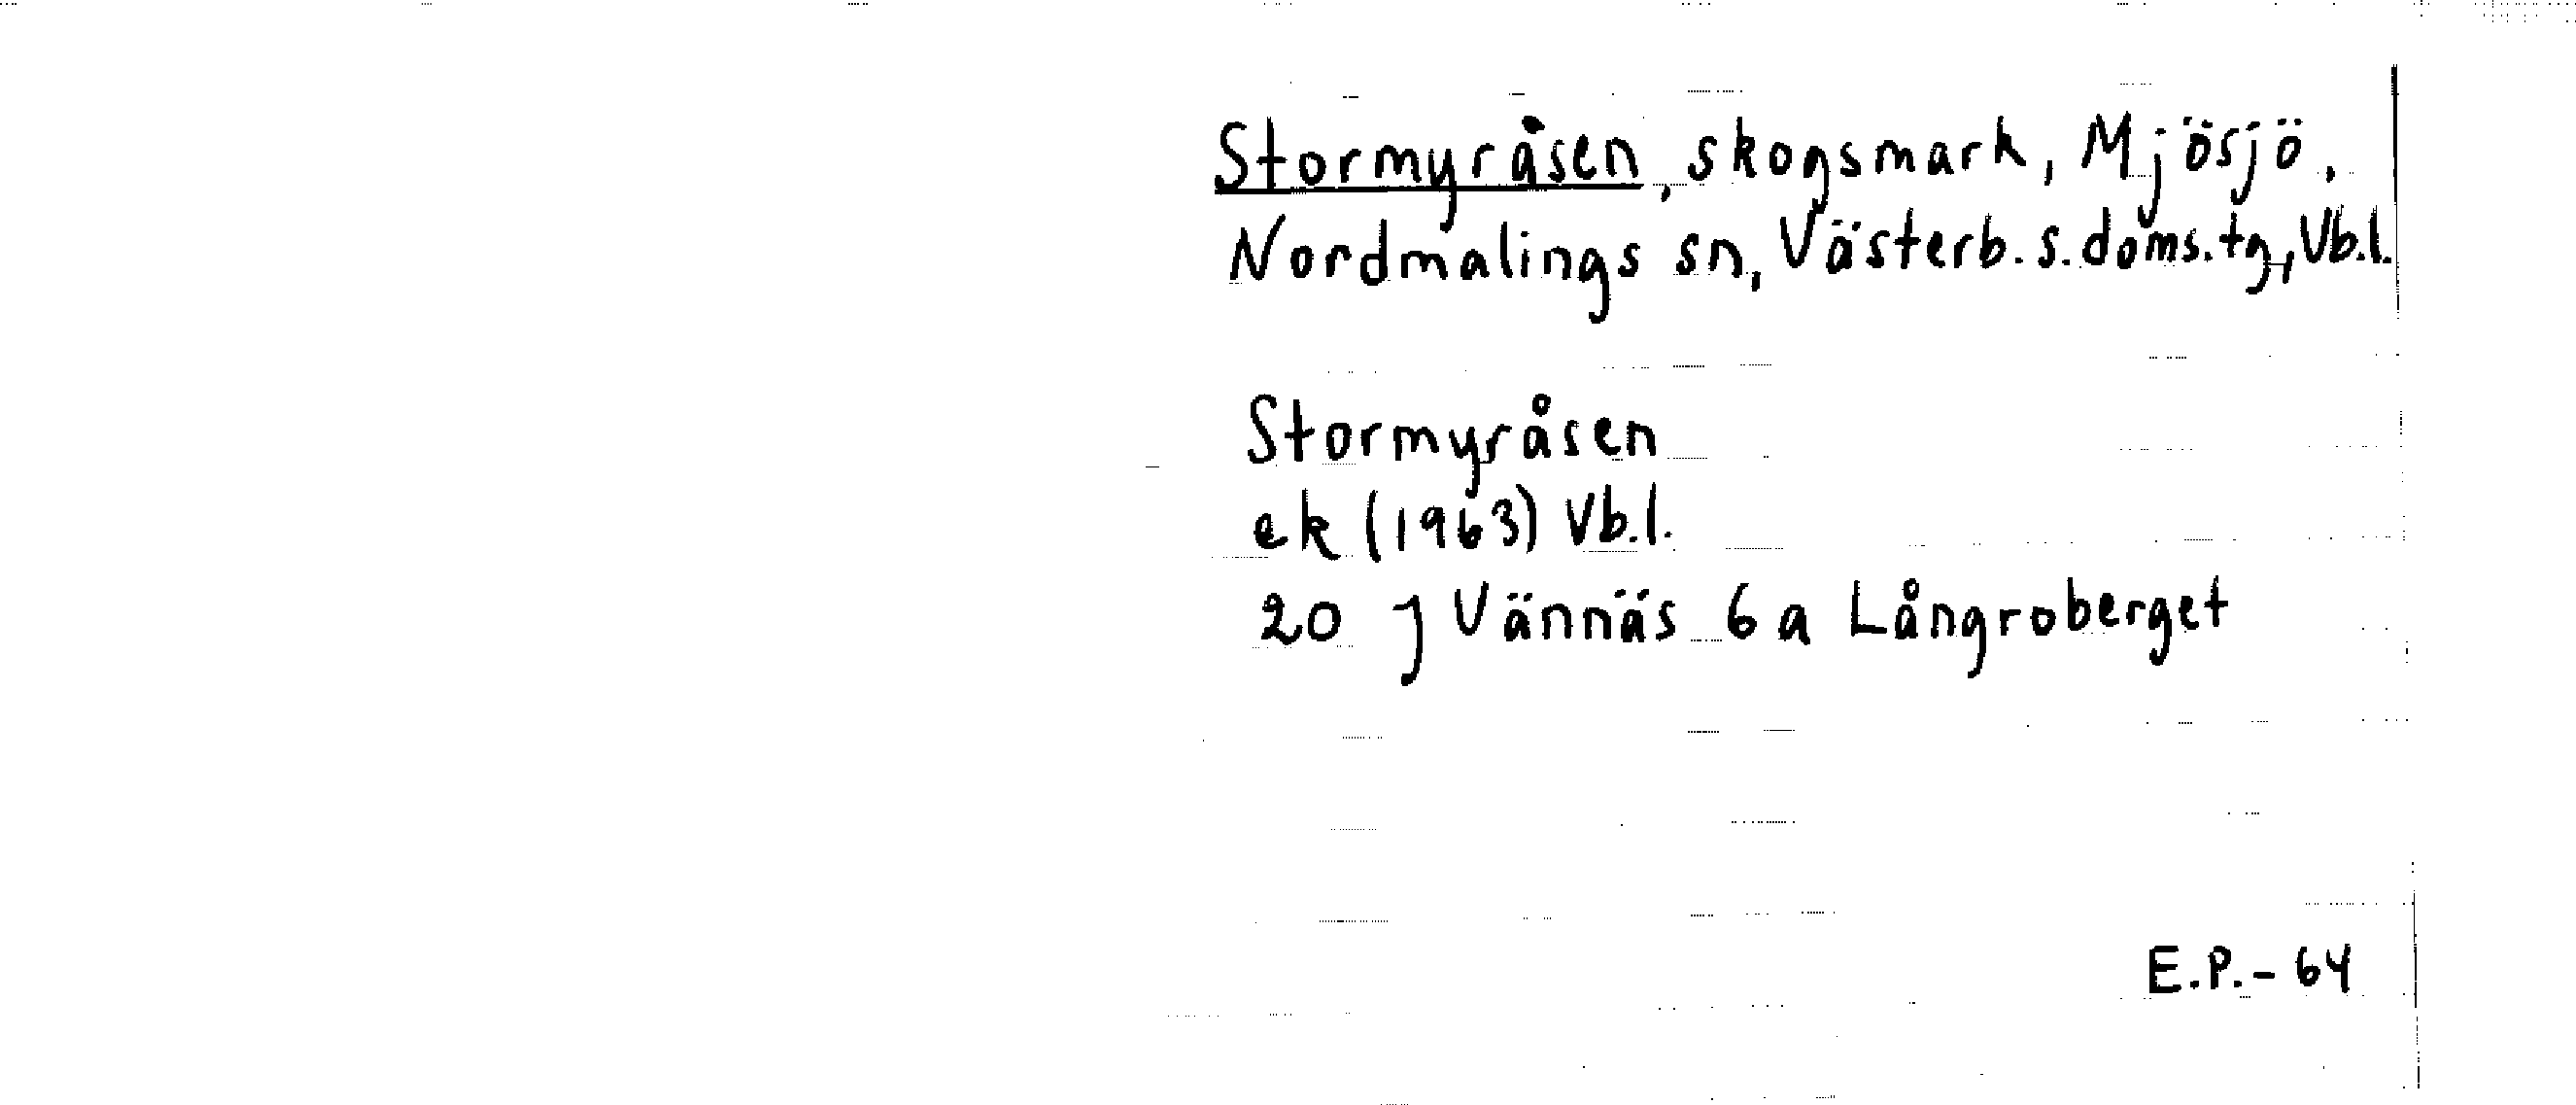 Stormyråsen, skogsmark, Mjösjö,
Nordmalings sn, Västerb.s.doms.tg, Vb.l.
Stormyråsen
ek (1963) Vb.l.
20 J Vännäs 6 a Långroberget
E.P.-64